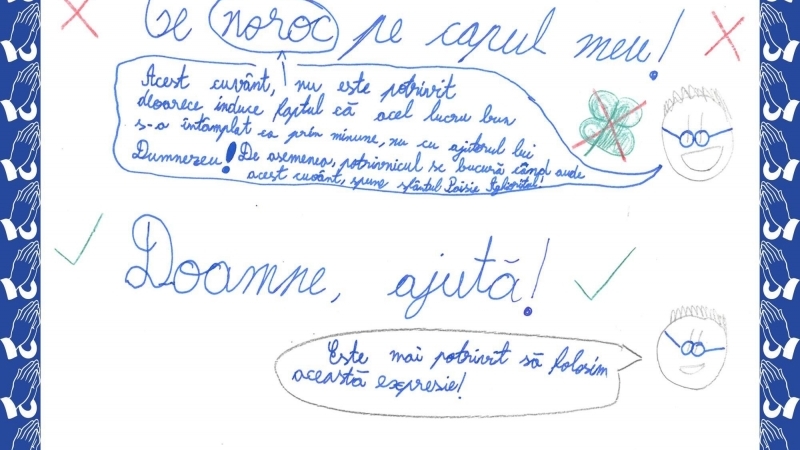 Ce noroc pe capul meu!
Acest cuvânt, nu este potrivit
deoarece induce faptul că acel lucru bun
s-a întâmplat ca prin minune, nu cu ajutorul lui
Dumnezeu! De asemenea, potrivnicul se bucură când aude
acest cuvânt, spune sfântul Paisie Aghioritul.
Doamne, ajută!
Este mai potrivit să folosim
această expresie!